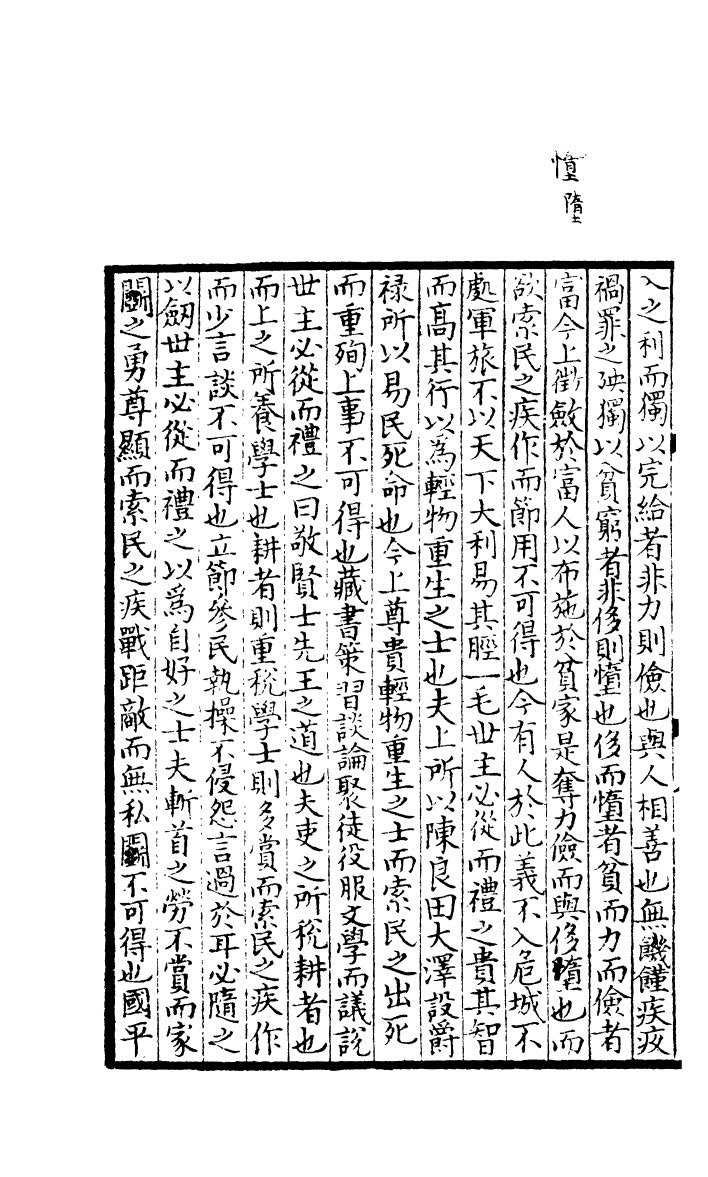 憧
隨
入之利而獨以完給者非力則儉也與人相善也無饑饉疾疫
禍罪之殃獨以貧窮者非侈則憧也侈而憧者貧而力而儉者
富今上徵斂於富人以布施於貧家是奪力儉而與侈隨也而
欲索民之疾作而節用不可得也今有人於此義不入危城不
處軍旅不以天下大利易其脛一毛世主必從而禮之貴其智
而高其行以為輕物重生之士也夫上所以陳良田大澤設爵
祿所以易民死命也今上尊貴輕物重生之士而索民之出死
而重殉上事不可得也藏書策習談論聚徒役服文學而議說
世主必從而禮之曰敬賢士先王之道也夫吏之所稅耕者也
而上之所養學士也耕者則重稅學士則多賞而索民之疾作
而少言談不可得也立節參民執操不侵怨言過於耳必隨之
以劔世主必從而禮之以爲自好之士夫斬首之勞不賞而家
鬭之勇尊顯而索民之疾戰距敵而無私鬭不可得也國平